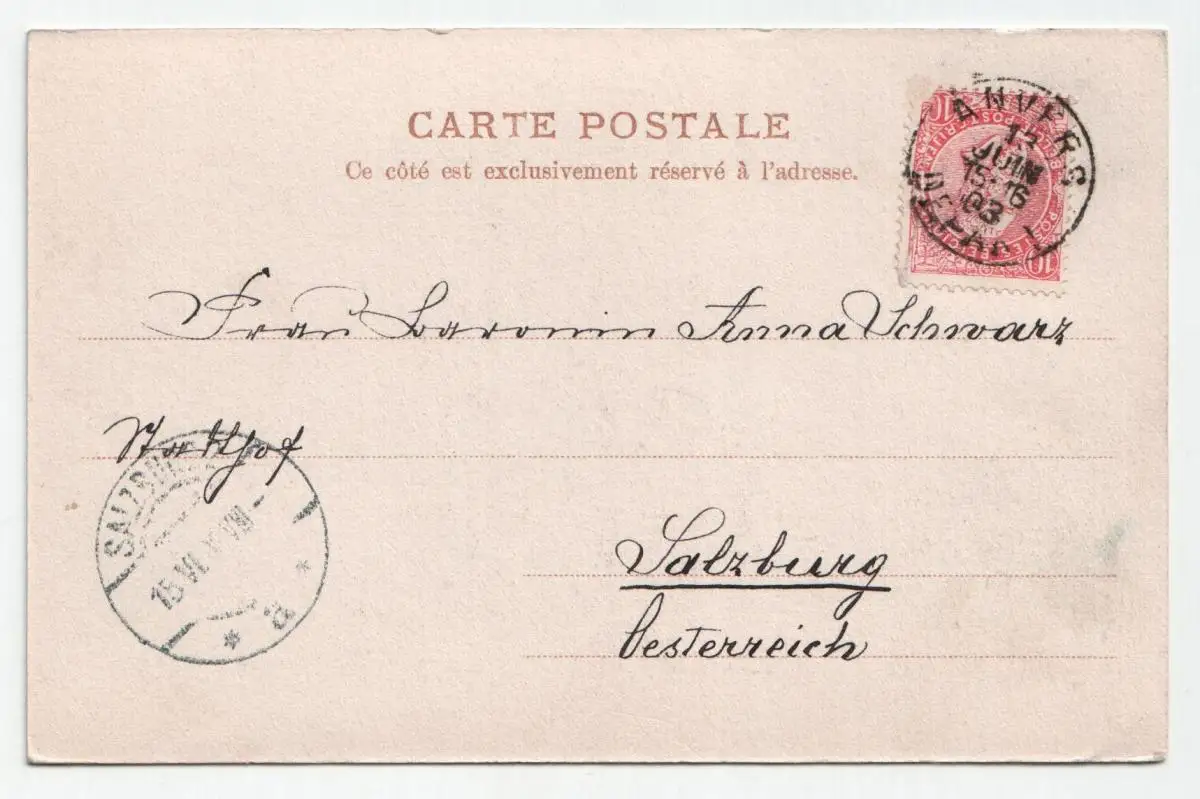 CARTE POSTALE
Ce côté est exclusivement réservé à l'adresse.
ANVERS
JUIN
15-16
03
DEPART
10
10
Frau Baronin Anna Schwarz
Statthof
SALZBURG
15 VI
a
Salzburg
Oesterreich